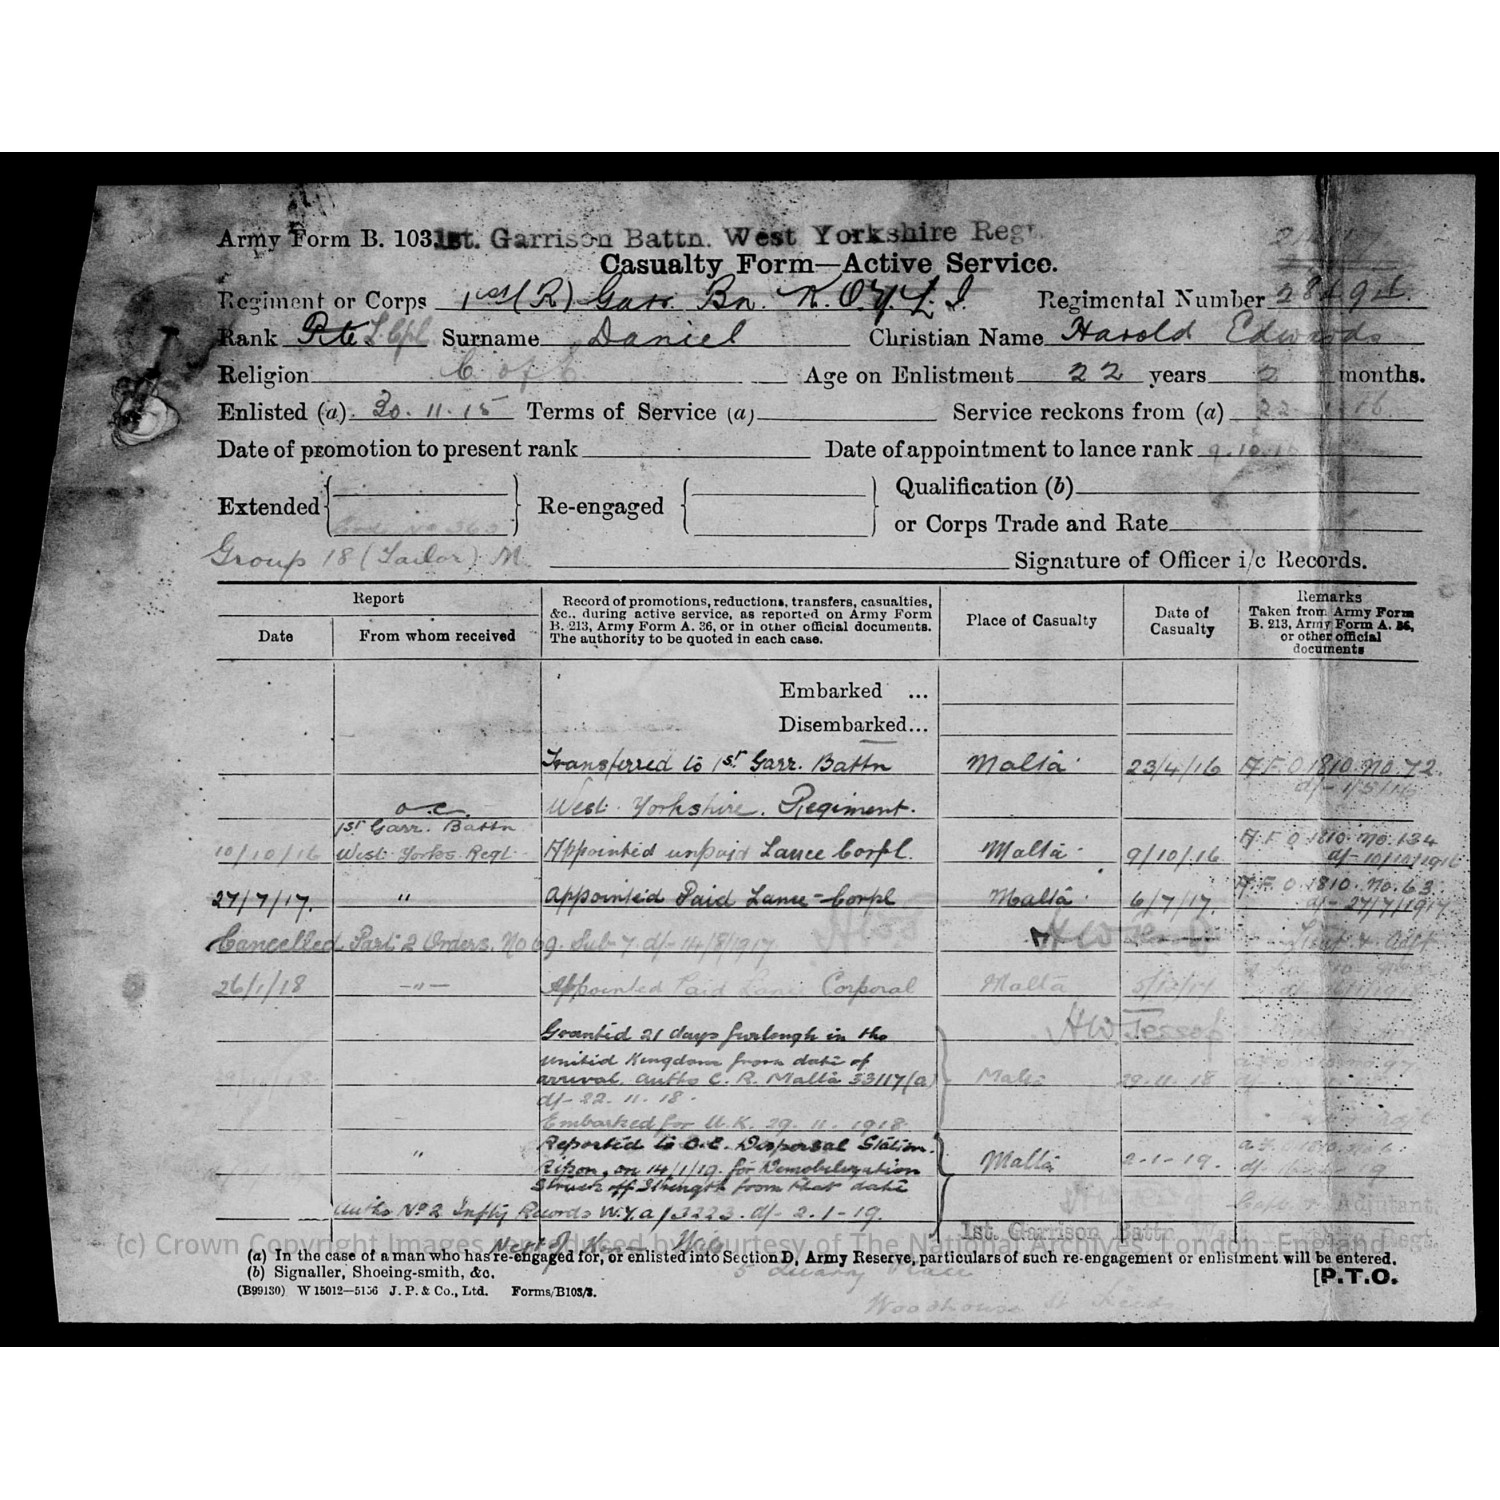 Army Form B. 103. 1st. Garrison Battn. West Yorkshire Regt.
Casualty Form—Active Service.
Regiment or Corps 1st (R) Garr. Bn. K.O.Y.L.I. Regimental Number
Rank Pte L.Cpl Surname Daniel Christian Name Harold Edwards
Religion C of E Age on Enlistment 22 years 2 months.
Enlisted (a) 30.11.15 Terms of Service (a) Service reckons from (a) 22
Date of promotion to present rank Date of appointment to lance rank 9.10.16
Extended Re-engaged Qualification (b)
or Corps Trade and Rate
Group 18 (Tailor) M. Signature of Officer i/c Records.
Report
Date From whom received
Record of promotions, reductions, transfers, casualties,
&c., during active service, as reported on Army Form
B. 213, Army Form A. 36, or in other official documents.
The authority to be quoted in each case.
Place of Casualty
Date of
Casualty
Remarks
Taken from Army Form
B. 213, Army Form A. 36,
or other official
documents
Embarked ...
Disembarked...
Transferred to 1st Garr. Battn Malta 23/4/16 A.F.O.1810. No. 72.
West Yorkshire. Regiment. d/- 1/5/16
O.C.
1st Garr. Battn
10/10/16 West Yorks. Regt. Appointed unpaid Lance Corpl. Malta 9/10/16 A.F.O 1810. No. 134
d/- 10/10/1916
27/7/17. " Appointed Paid Lance-Corpl Malta 6/7/17. A.F.O.1810. No. 63.
d/- 27/7/1917
Cancelled Part 2 Orders, No 69. Sub 7. d/- 14/8/1917. Lieut & Adjt
26/1/18 -"- Appointed Paid Lance Corporal Malta
H W Jessop
Granted 21 days furlough in the
United Kingdom from date of
arrival. Autho C. R. Malta 33117(a) Malta 29.11.18
d/- 22.11.18.
Embarked for U.K. 29.11.1918.
" Reported to O.C. Dispersal Station.
Ripon, on 14/1/19. for Demobilization Malta 2-1-19.
Struck off Strength from that date
Autho No 2 Infty Records W.Y.a/3223. d/- 2.1-19.
Capt & Adjutant.
1st. Garrison Battn West Regt.
(c) Crown Copyright Images reproduced by courtesy of The National Archives, London, England.
Next of Kin
(a) In the case of a man who has re-engaged for, or enlisted into Section D, Army Reserve, particulars of such re-engagement or enlistment will be entered.
(b) Signaller, Shoeing-smith, &c. 5 Quarry Place [P.T.O.
(B99130) W 15012—5156 J. P. & Co., Ltd. Forms/B103/3.
Woodhouse St Leeds